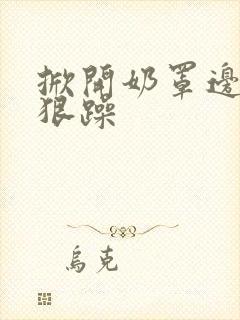 掀開奶罩邊
狠躁
烏克